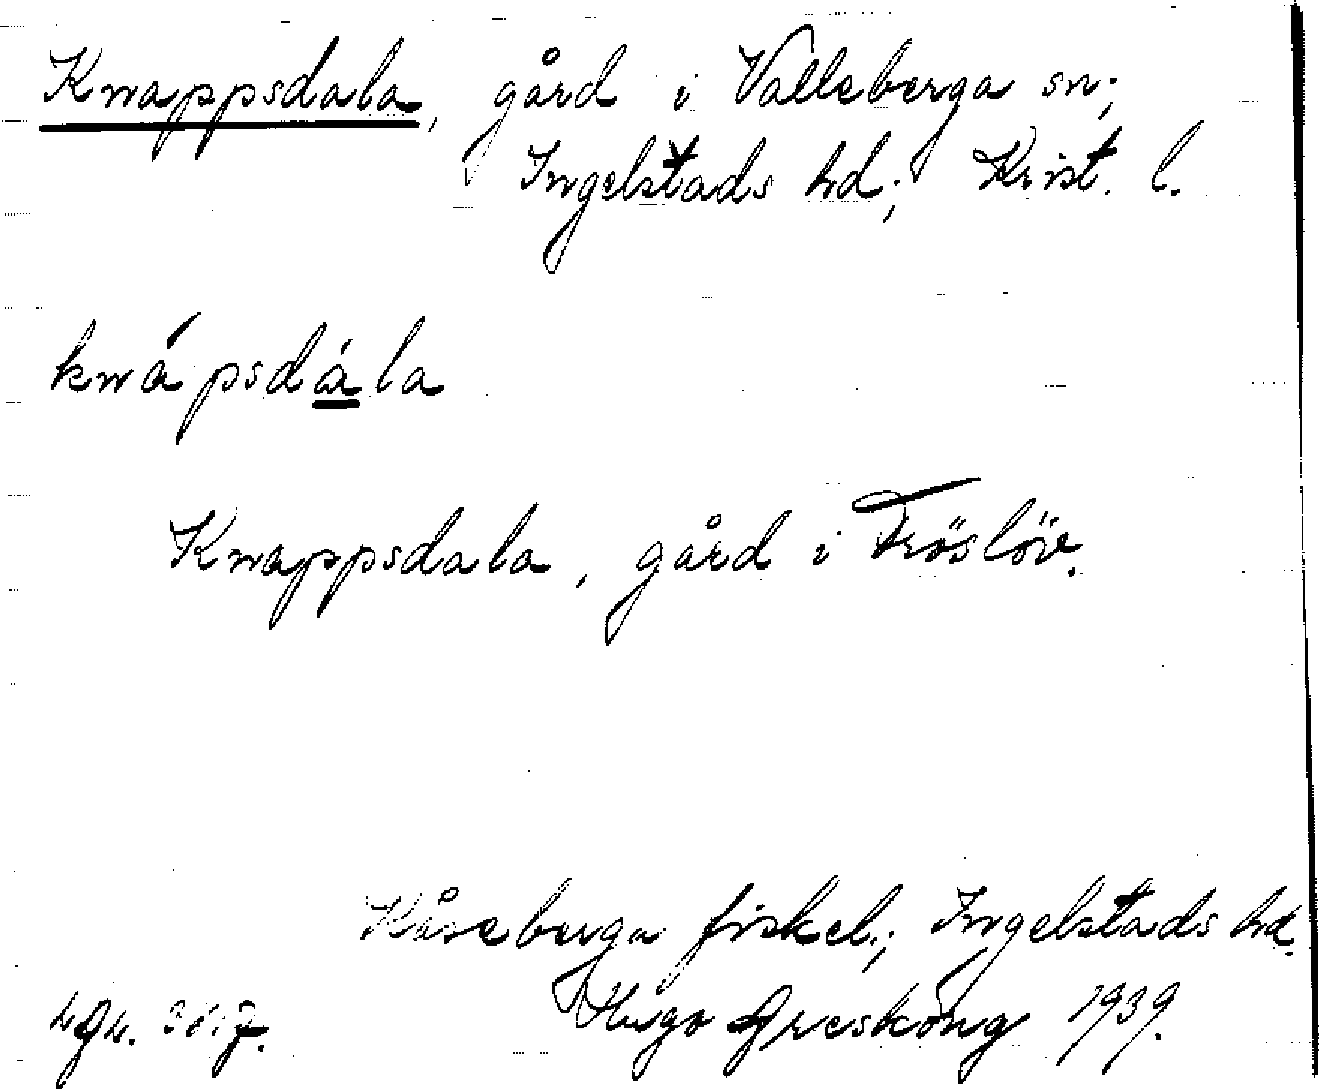 Knappsdala, gård i Valleberga sn;
Ingelstads hd; Krist. l.
knápsdàla
Knappsdala, gård i Fröslöv.
Kåseberga fiskel.; Ingelstads hd.
Hugo Areskoug 1939.